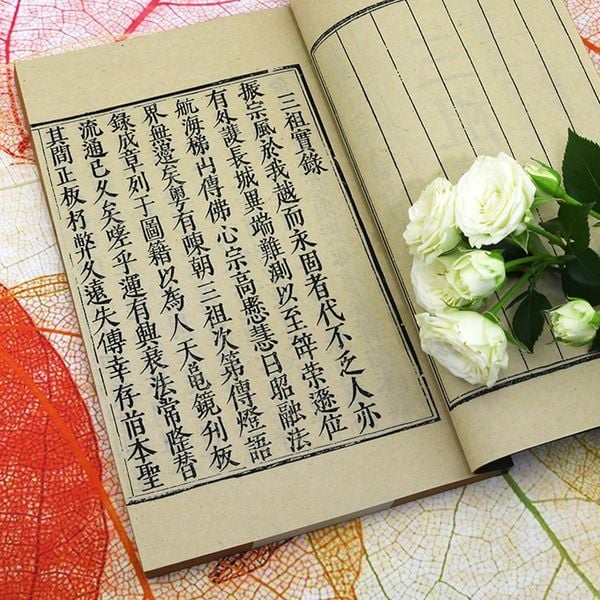 三祖實錄
振宗風於我越而永固者代不乏人亦
有外護長城端難測以至辝榮遜位
航海梯山傳佛心宗高懸慧日昭融法
界無邉矣粵有陳朝三祖次第傳燈語
錄底草列于圖籍以為人天龜鏡刋板
流通已久矣嗟乎運有興衰法常隆替
其間正板朽弊久遠失傳幸存首本聖